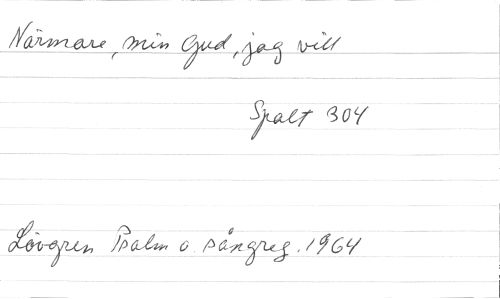 Närmare, min Gud, jag vill
Spalt 304
Lövgren Psalm o. sångreg. 1964